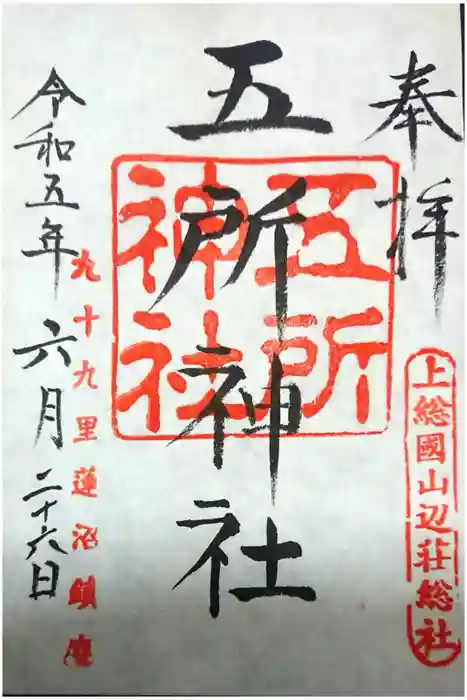 奉拝
上総國山辺荘総社
五所神社
五所神社
九十九里蓮沼鎮座
令和五年六月二十六日